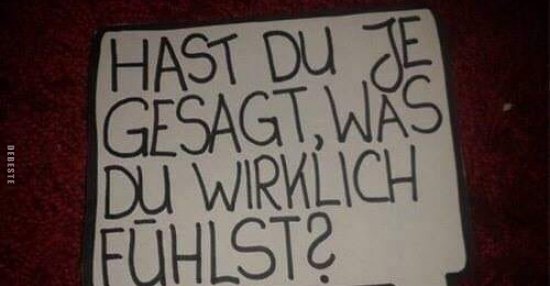 HAST DU JE
GESAGT, WAS
DU WIRKLICH
FÜHLST?
DEBESTE